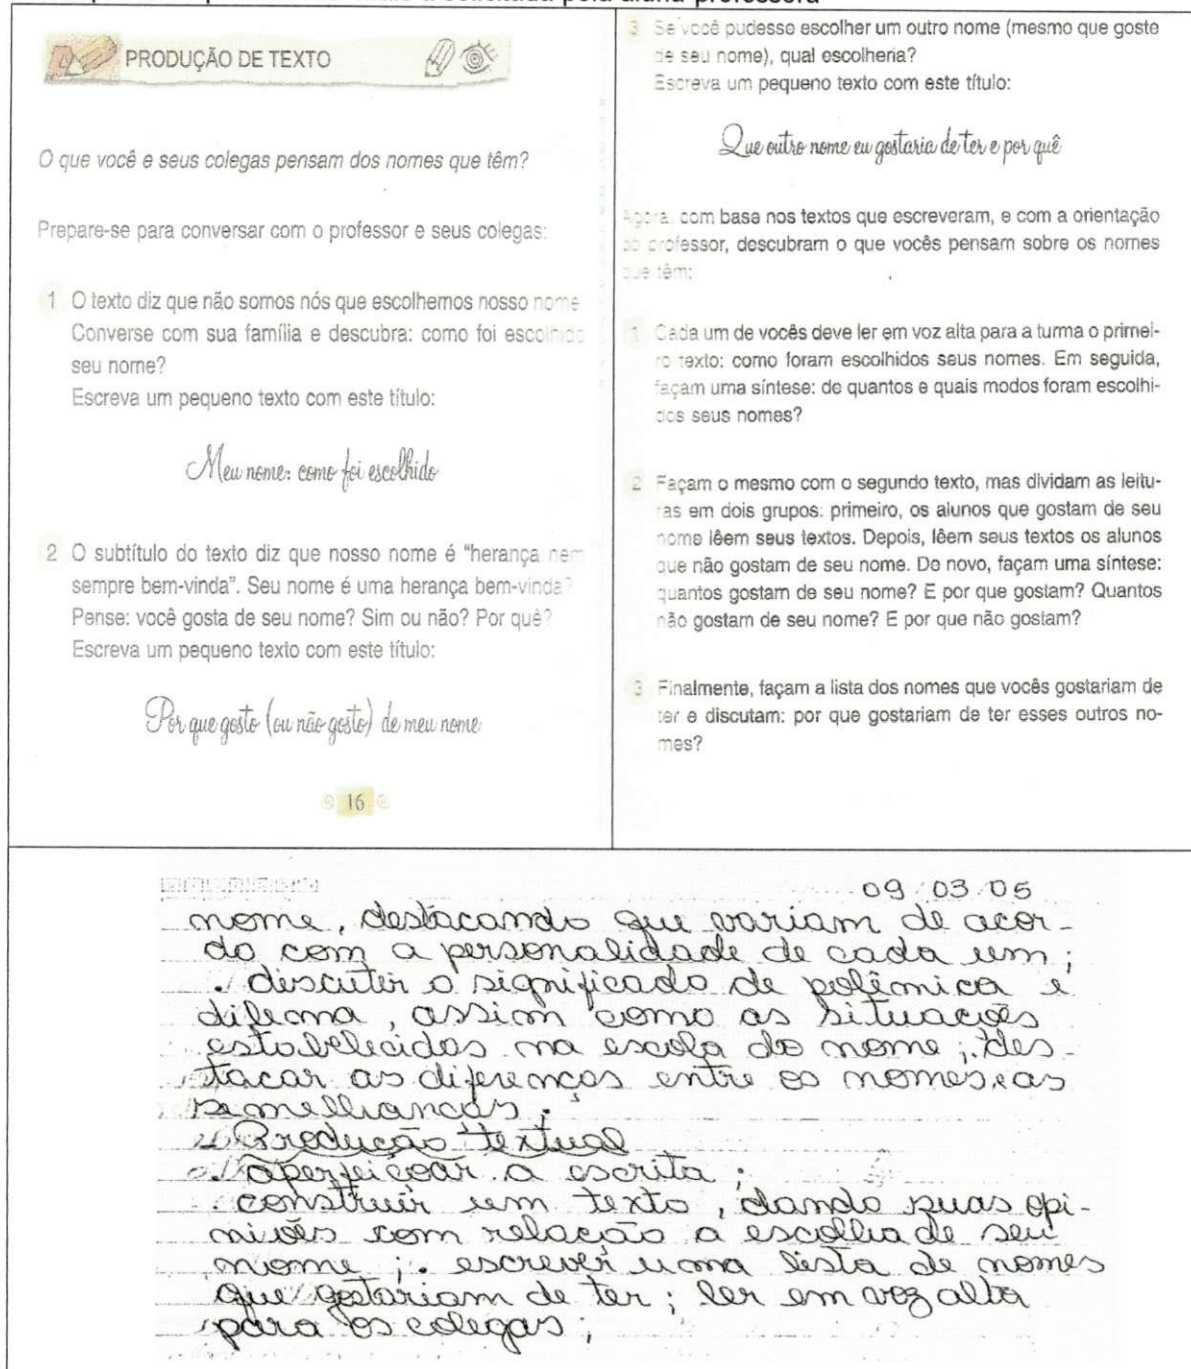 PRODUÇÃO DE TEXTO
O que você e seus colegas pensam dos nomes que têm?
Prepare-se para conversar com o professor e seus colegas:
1 O texto diz que não somos nós que escolhemos nosso nome
Converse com sua família e descubra: como foi escolhido
seu nome?
Escreva um pequeno texto com este título:
Meu nome: como foi escolhido
2 O subtítulo do texto diz que nosso nome é “herança nem
sempre bem-vinda”. Seu nome é uma herança bem-vinda?
Pense: você gosta de seu nome? Sim ou não? Por quê?
Escreva um pequeno texto com este título:
Por que gosto (ou não gosto) de meu nome
16
3 Se você pudesse escolher um outro nome (mesmo que goste
de seu nome), qual escolheria?
Escreva um pequeno texto com este título:
Que outro nome eu gostaria de ter e por quê
Agora, com base nos textos que escreveram, e com a orientação
do professor, descubram o que vocês pensam sobre os nomes
que têm:
1 Cada um de vocês deve ler em voz alta para a turma o primei-
ro texto: como foram escolhidos seus nomes. Em seguida,
façam uma síntese: de quantos e quais modos foram escolhi-
dos seus nomes?
2 Façam o mesmo com o segundo texto, mas dividam as leitu-
ras em dois grupos: primeiro, os alunos que gostam de seu
nome lêem seus textos. Depois, lêem seus textos os alunos
que não gostam de seu nome. De novo, façam uma síntese:
quantos gostam de seu nome? E por que gostam? Quantos
não gostam de seu nome? E por que não gostam?
3 Finalmente, façam a lista dos nomes que vocês gostariam de
ter e discutam: por que gostariam de ter esses outros no-
mes?
09.03.05
nome, destacando que variam de acor-
do com a personalidade de cada um;
. discutir o significado de polêmica e
dilema, assim como as situações
estabelecidas na escola do nome; des-
tacar as diferenças entre os nomes, as
semelhanças;
Produção textual
. aperfeiçoar a escrita;
. construir um texto, dando suas opi-
niões com relação a escolha de seu
nome; . escrever uma lista de nomes
que gostariam de ter; ler em voz alta
para os colegas;